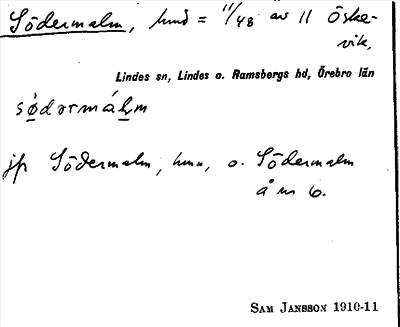 Södermalm, hmd = 11/48 av 11 Öske-
vik,
Lindes sn, Lindes o. Ramsbergs hd, Örebro län
södərmálm
jfr Södermalm, hmn, o. Södermalm
å nr 6.
SAM JANSSON 1910-11